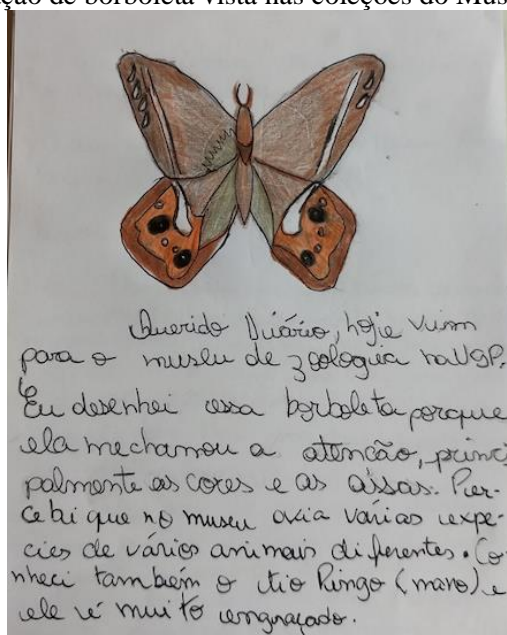 ção de borboleta vista nas coleções do Mus
Querido Diário, hoje viem
para o museu de zoologia na USP.
Eu desenhei essa borboleta porque
ela mechamou a atenção, princi
palmente as cores e as assas. Per-
cebi que no museu avia varias expe-
cies de vários animais diferentes. Co-
nheci também o tio Ringo (mano) e
ele é muito engraçado.